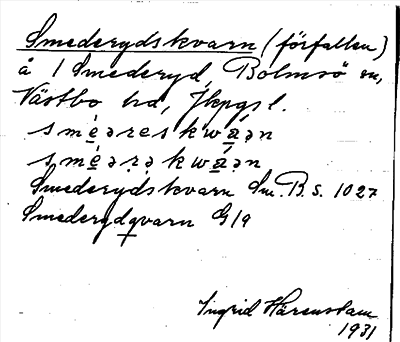 Smederydskvarn (förfallen)
å 1 Smederyd, Bolmsö sn,
Västbo hd, Jkpgs l.
sméəreskwá̱ən
smé̱ərəkwá̱ən
Smederydskvarn Sm. B. S. 1027
Smederydqvarn G1a
Ingrid Härenstam
1931